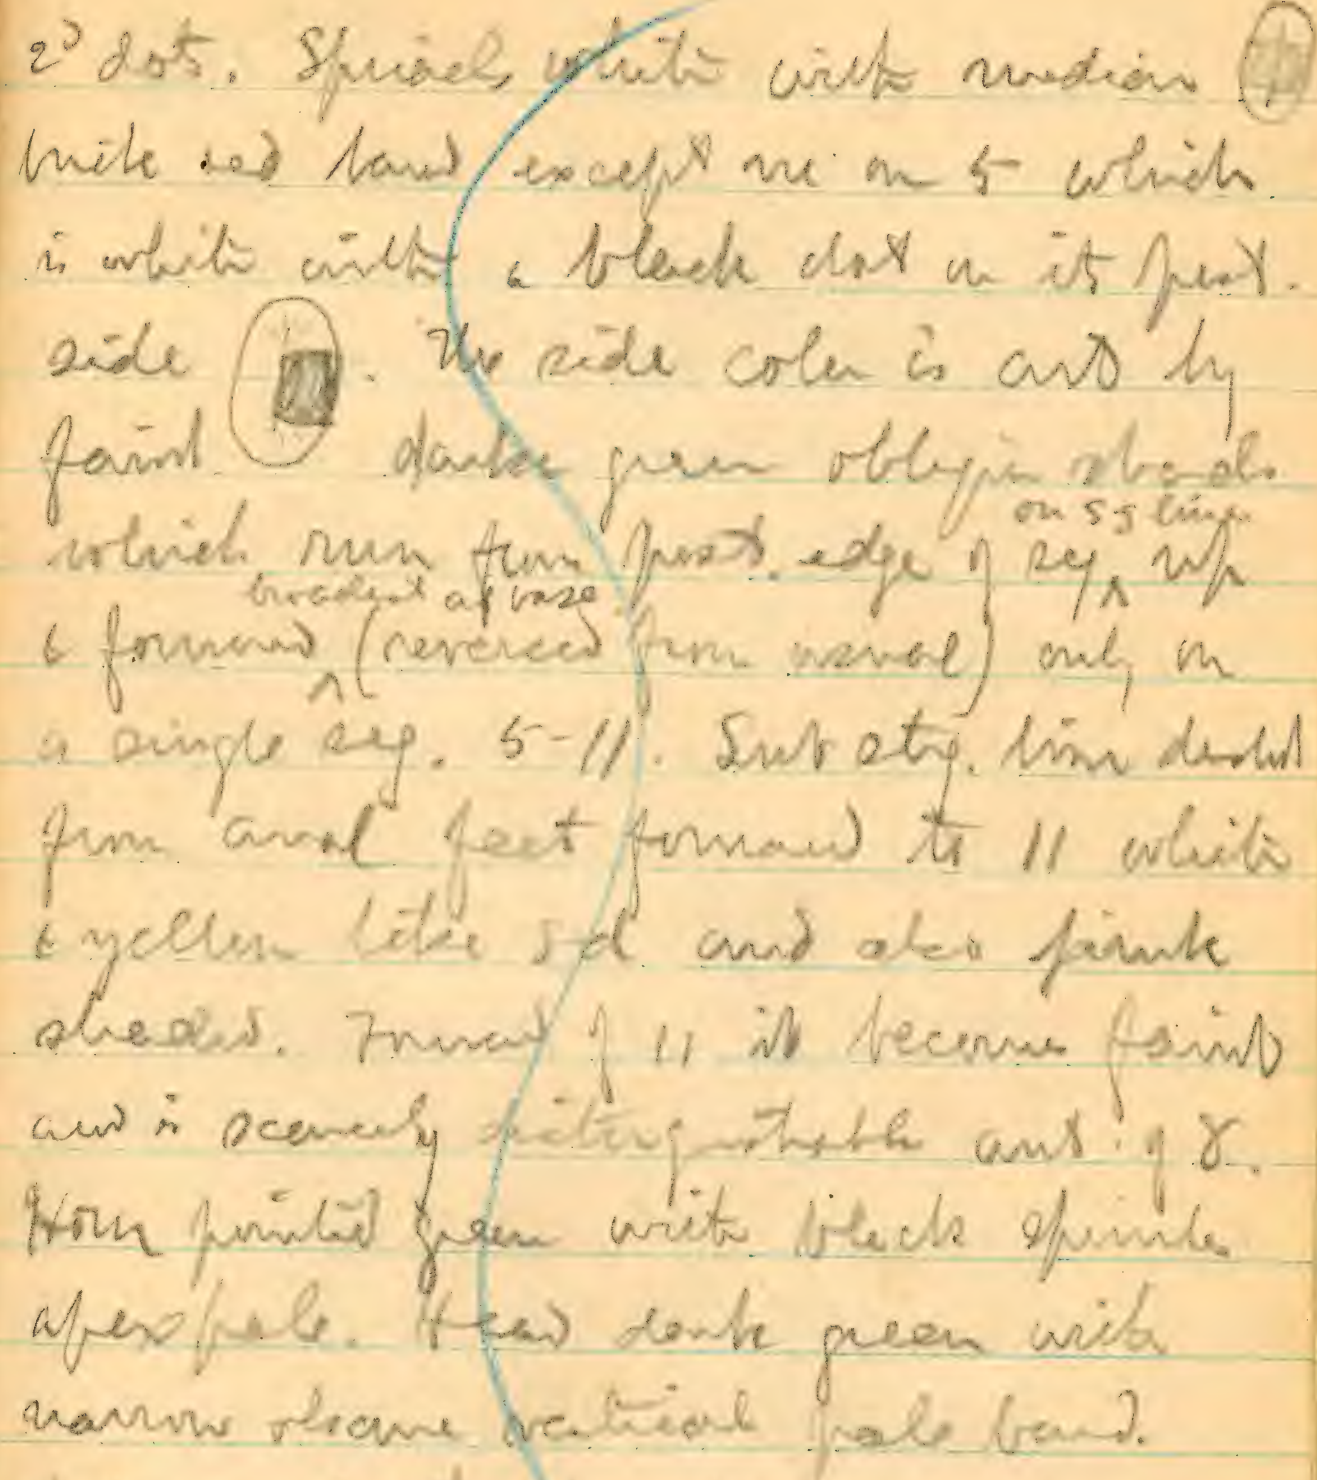 2d dots. Spiracles white with median
brick red band except one on 5 which
is white with a black dot on its post.
side . The side color is cut by
faint darker green oblique shades
on 5 s line
which run from post. edge of seg. up
broadest at base
& forward (reversed from usual) only on
a single seg. 5-11. Sub stig. line
from anal feet forward to 11 white
& yellow like s d and also pink
shaded. Forward of 11 it becomes faint
and is scarcely distinguishable ant. of 8.
Horn pointed green with black spinules
apex pale. Head dark green with
narrow obscure vertical pale band.